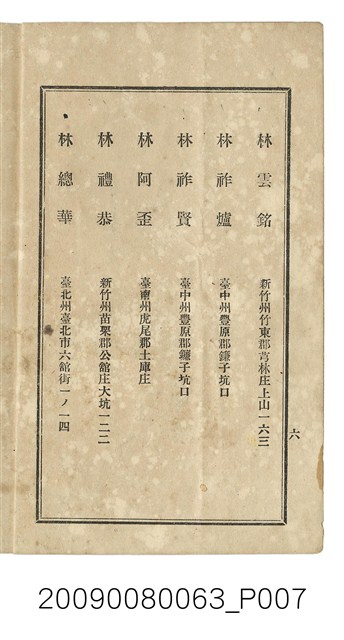 林雲銘 新竹州竹東郡芎林庄上山一六三
林祚爐 臺中州豐原郡鐮子坑口
林祚賢 臺中州豐原郡鐮子坑口
林阿歪 臺南州虎尾郡土庫庄
林禮恭 新竹州苗栗郡公館庄大坑一二二
林總華 臺北州臺北市六館街一ノ一四
六
20090080063_P007